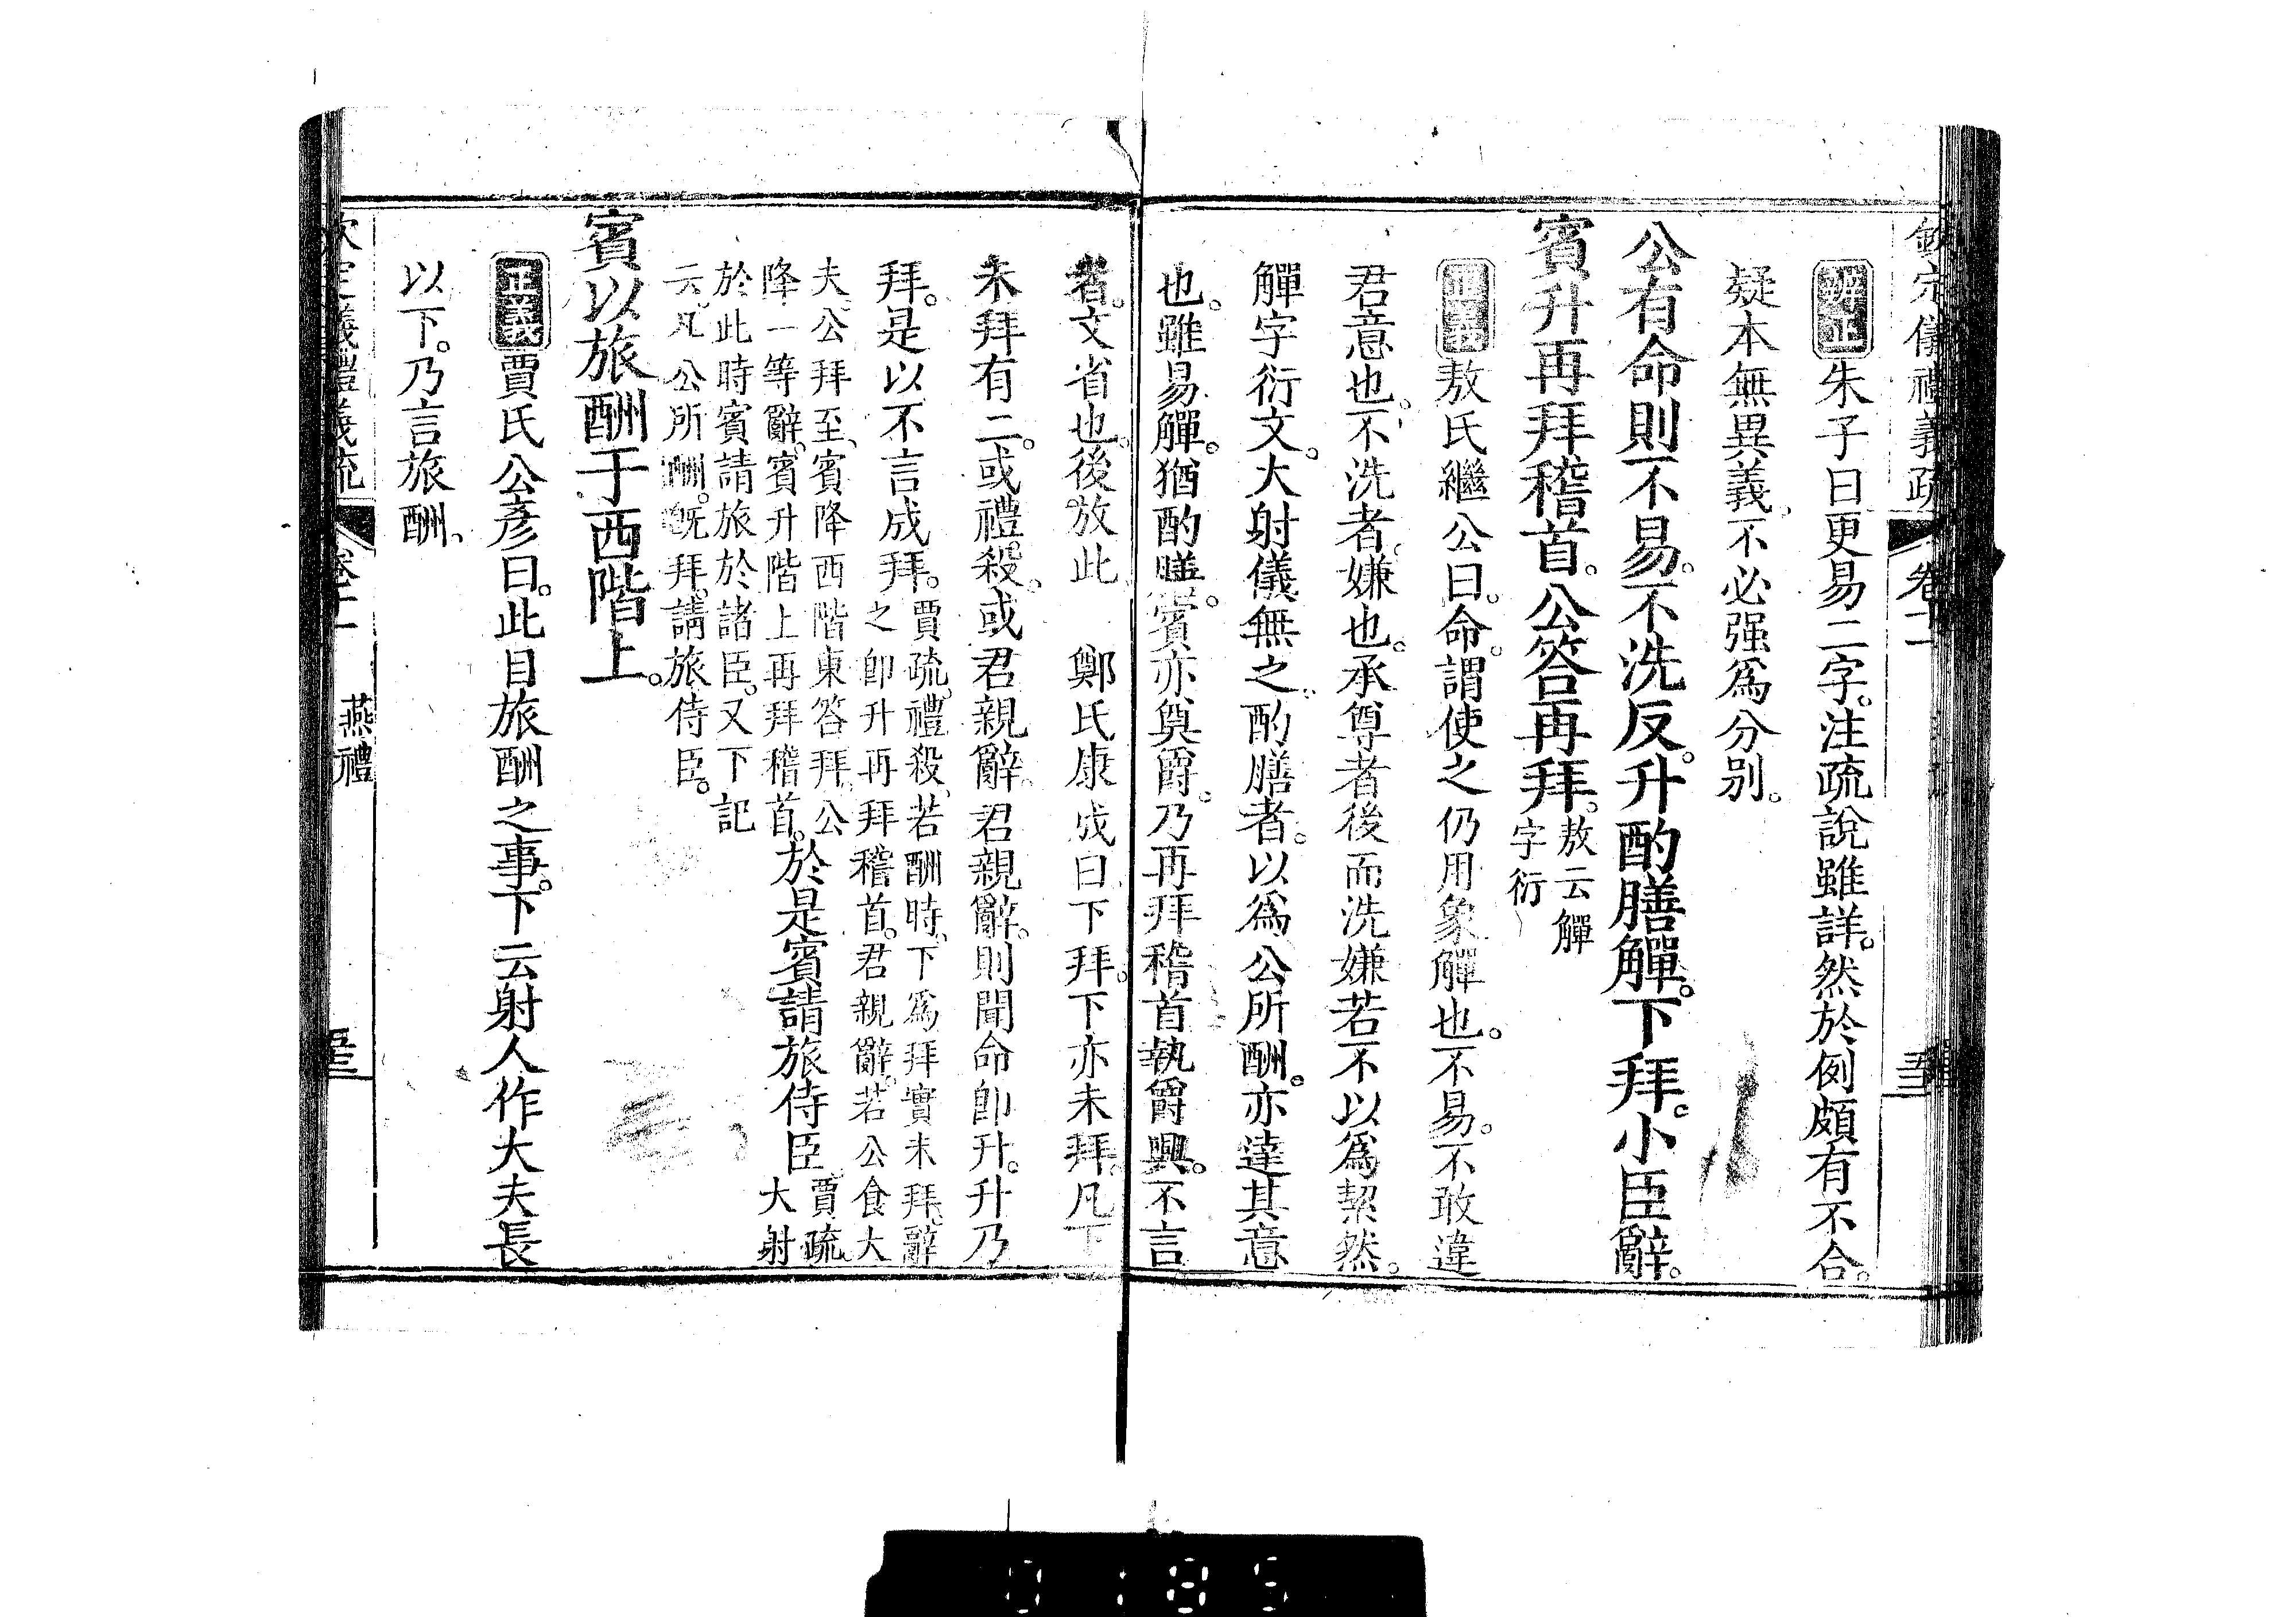 欽定儀禮義疏 卷十一
辨正朱子曰更易二字。注疏說雖詳。然於例頗有不合。
疑本無異義、不必强爲分别。
公有命則不易。不洗反。升酌膳觶。下拜。小臣辭。
賓升再拜稽首。公答再拜。敖云觶
字衍
正義敖氏繼公曰。命。謂使之仍用象觶也。不易。不敢違
君意也。不洗者。嫌也。承尊者後而洗嫌若不以爲絜然。
觶字衍文。大射儀無之。酌膳者。以爲公所酬。亦達其意
也。雖易觶。猶酌膳。賓亦奠爵。乃再拜稽首執爵興。不言
者。文省也。後放此 鄭氏康成曰下拜。下亦未拜。凡下
未拜有二。或禮殺。或君親辭。君親辭。則聞命卽升。升乃
拜。是以不言成拜。賈疏。禮殺、若酬時。下爲拜實未拜。辭
之卽升再拜稽首。君親辭。若公食大
夫、公拜至、賓降西階東答拜、公
降一等辭。賓升階上再拜稽首。於是賓請旅侍臣。賈疏。
大射
於此時賓請旅於諸臣。又下記
云。凡公所酬。旣拜。請旅侍臣。
賓以旅酬于西階上。
正義賈氏公彥曰。此目旅酬之事。下云射人作大夫長
以下。乃言旅酬、
欽定儀禮義疏 卷十一 燕禮
0185